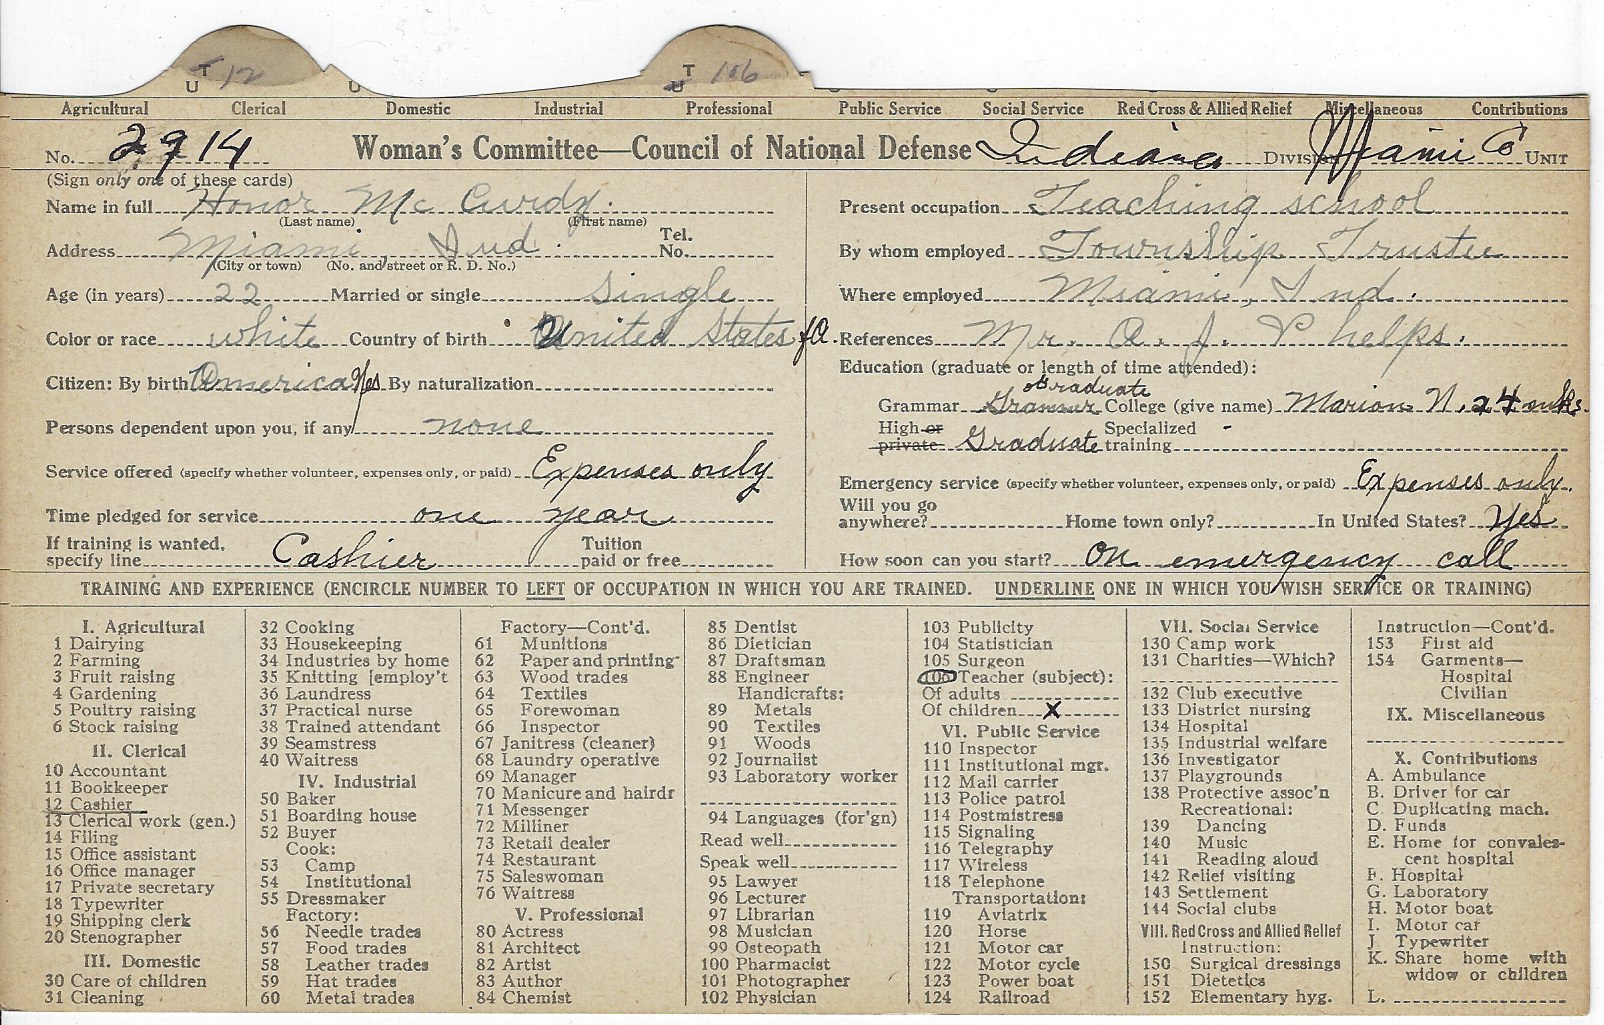 T T
U 12 U U 106
Agricultural Clerical Domestic Industrial Professional Public Service Social Service Red Cross & Allied Relief Miscellaneous Contributions
No. 2914 Woman's Committee—Council of National Defense Indiana Division Miami Co Unit
(Sign only one of these cards)
Name in full Honor Mc Curdy.
(Last name) (First name)
Address Miami Ind. Tel. No.
(City or town) (No. and street or R. D. No.)
Age (in years) 22 Married or single single
Color or race white Country of birth United States of A.
Citizen: By birth America Yes By naturalization
Persons dependent upon you, if any none
Service offered (specify whether volunteer, expenses only, or paid) Expenses only
Time pledged for service one year
If training is wanted, specify line Cashier Tuition paid or free
Present occupation Teaching school
By whom employed Township Trustee
Where employed Miami, Ind.
References Mr. A. J. Phelps.
Education (graduate or length of time attended):
Graduate
Grammar Grammar College (give name) Marion N. 24 wks.
High or private Graduate Specialized training -
Emergency service (specify whether volunteer, expenses only, or paid) Expenses only.
Will you go anywhere? Home town only? In United States? Yes
How soon can you start? On emergency call
TRAINING AND EXPERIENCE (ENCIRCLE NUMBER TO LEFT OF OCCUPATION IN WHICH YOU ARE TRAINED. UNDERLINE ONE IN WHICH YOU WISH SERVICE OR TRAINING)
I. Agricultural
1 Dairying
2 Farming
3 Fruit raising
4 Gardening
5 Poultry raising
6 Stock raising
II. Clerical
10 Accountant
11 Bookkeeper
12 Cashier
13 Clerical work (gen.)
14 Filing
15 Office assistant
16 Office manager
17 Private secretary
18 Typewriter
19 Shipping clerk
20 Stenographer
III. Domestic
30 Care of children
31 Cleaning
32 Cooking
33 Housekeeping
34 Industries by home
35 Knitting [employ't
36 Laundress
37 Practical nurse
38 Trained attendant
39 Seamstress
40 Waitress
IV. Industrial
50 Baker
51 Boarding house
52 Buyer
Cook:
53 Camp
54 Institutional
55 Dressmaker
Factory:
56 Needle trades
57 Food trades
58 Leather trades
59 Hat trades
60 Metal trades
Factory—Cont'd.
61 Munitions
62 Paper and printing
63 Wood trades
64 Textiles
65 Forewoman
66 Inspector
67 Janitress (cleaner)
68 Laundry operative
69 Manager
70 Manicure and hairdr
71 Messenger
72 Milliner
73 Retail dealer
74 Restaurant
75 Saleswoman
76 Waitress
V. Professional
80 Actress
81 Architect
82 Artist
83 Author
84 Chemist
85 Dentist
86 Dietician
87 Draftsman
88 Engineer
Handicrafts:
89 Metals
90 Textiles
91 Woods
92 Journalist
93 Laboratory worker
94 Languages (for'gn)
Read well
Speak well
95 Lawyer
96 Lecturer
97 Librarian
98 Musician
99 Osteopath
100 Pharmacist
101 Photographer
102 Physician
103 Publicity
104 Statistician
105 Surgeon
106 Teacher (subject):
Of adults
Of children X
VI. Public Service
110 Inspector
111 Institutional mgr.
112 Mail carrier
113 Police patrol
114 Postmistress
115 Signaling
116 Telegraphy
117 Wireless
118 Telephone
Transportation:
119 Aviatrix
120 Horse
121 Motor car
122 Motor cycle
123 Power boat
124 Railroad
VII. Social Service
130 Camp work
131 Charities—Which?
132 Club executive
133 District nursing
134 Hospital
135 Industrial welfare
136 Investigator
137 Playgrounds
138 Protective assoc'n
Recreational:
139 Dancing
140 Music
141 Reading aloud
142 Relief visiting
143 Settlement
144 Social clubs
VIII. Red Cross and Allied Relief
Instruction:
150 Surgical dressings
151 Dietetics
152 Elementary hyg.
Instruction—Cont'd.
153 First aid
154 Garments—
Hospital
Civilian
IX. Miscellaneous
X. Contributions
A. Ambulance
B. Driver for car
C. Duplicating mach.
D. Funds
E. Home for convales-
cent hospital
F. Hospital
G. Laboratory
H. Motor boat
I. Motor car
J. Typewriter
K. Share home with
widow or children
L.